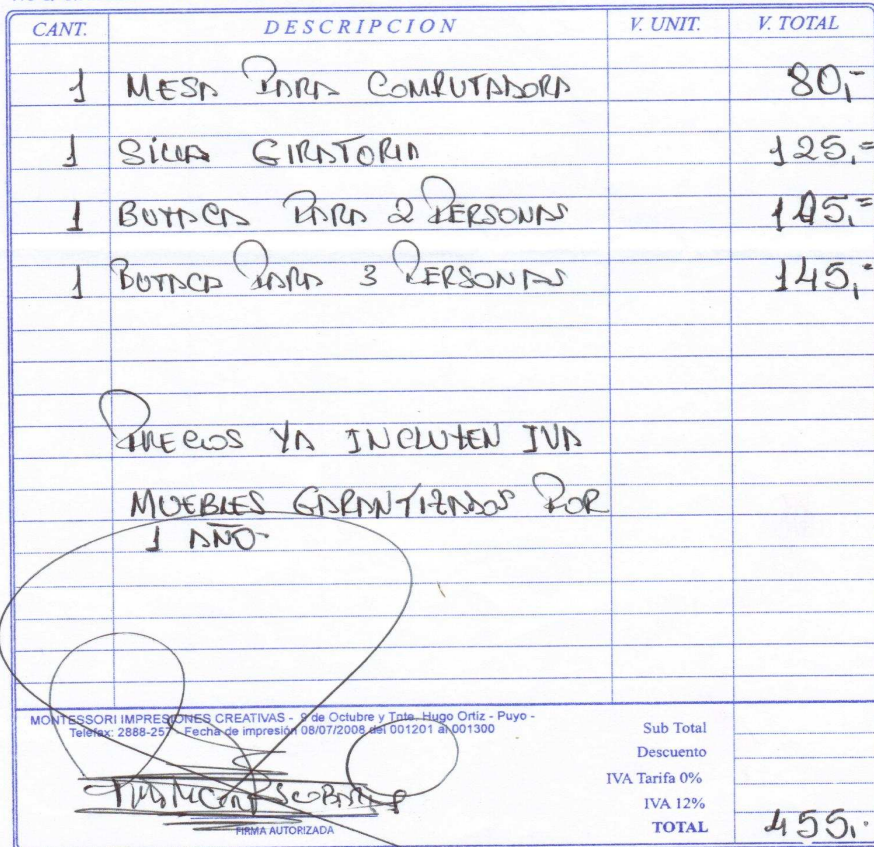 CANT. DESCRIPCION V. UNIT. V. TOTAL
1 MESA PARA COMPUTADORA 80,-
1 SILLA GIRATORIA 125,=
1 BUTACA PARA 2 PERSONAS 105,=
1 BUTACA PARA 3 PERSONAS 145,-
PRECIOS YA INCLUYEN IVA
MUEBLES GARANTIZADOS POR
1 AÑO-
MONTESSORI IMPRESIONES CREATIVAS - 9 de Octubre y Tnte. Hugo Ortiz - Puyo -
Telefax: 2888-257 Fecha de impresión 08/07/2008 del 001201 al 001300
Sub Total
Descuento
IVA Tarifa 0%
IVA 12%
FIRMA AUTORIZADA
TOTAL 455,-